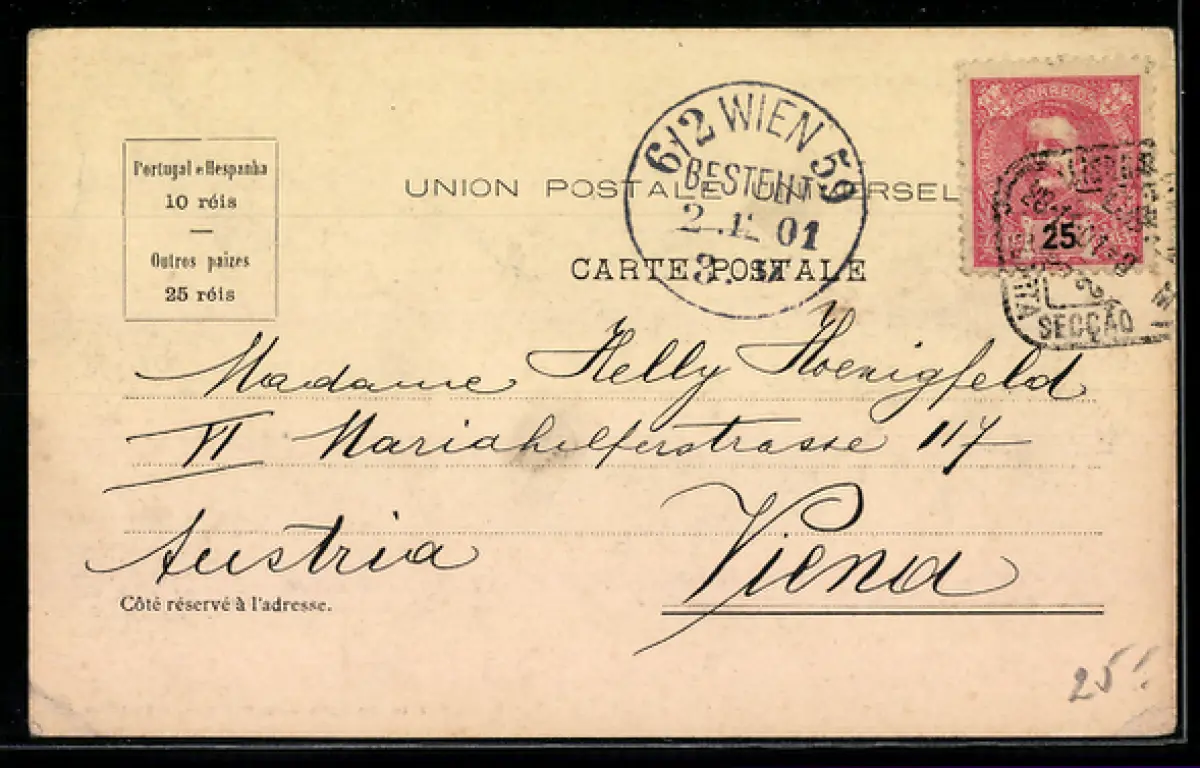 CORREIOS
25
6/2 WIEN 59
BESTELLT
2. II. 01
SECÇÃO
Portugal e Hespanha
10 réis
Outros paizes
25 réis
UNION POSTALE UNIVERSELLE
CARTE POSTALE
Madame Helly Hoenigfeld
VI Mariahilferstrasse 117
Austria
Viena
Côté réservé à l'adresse.
25